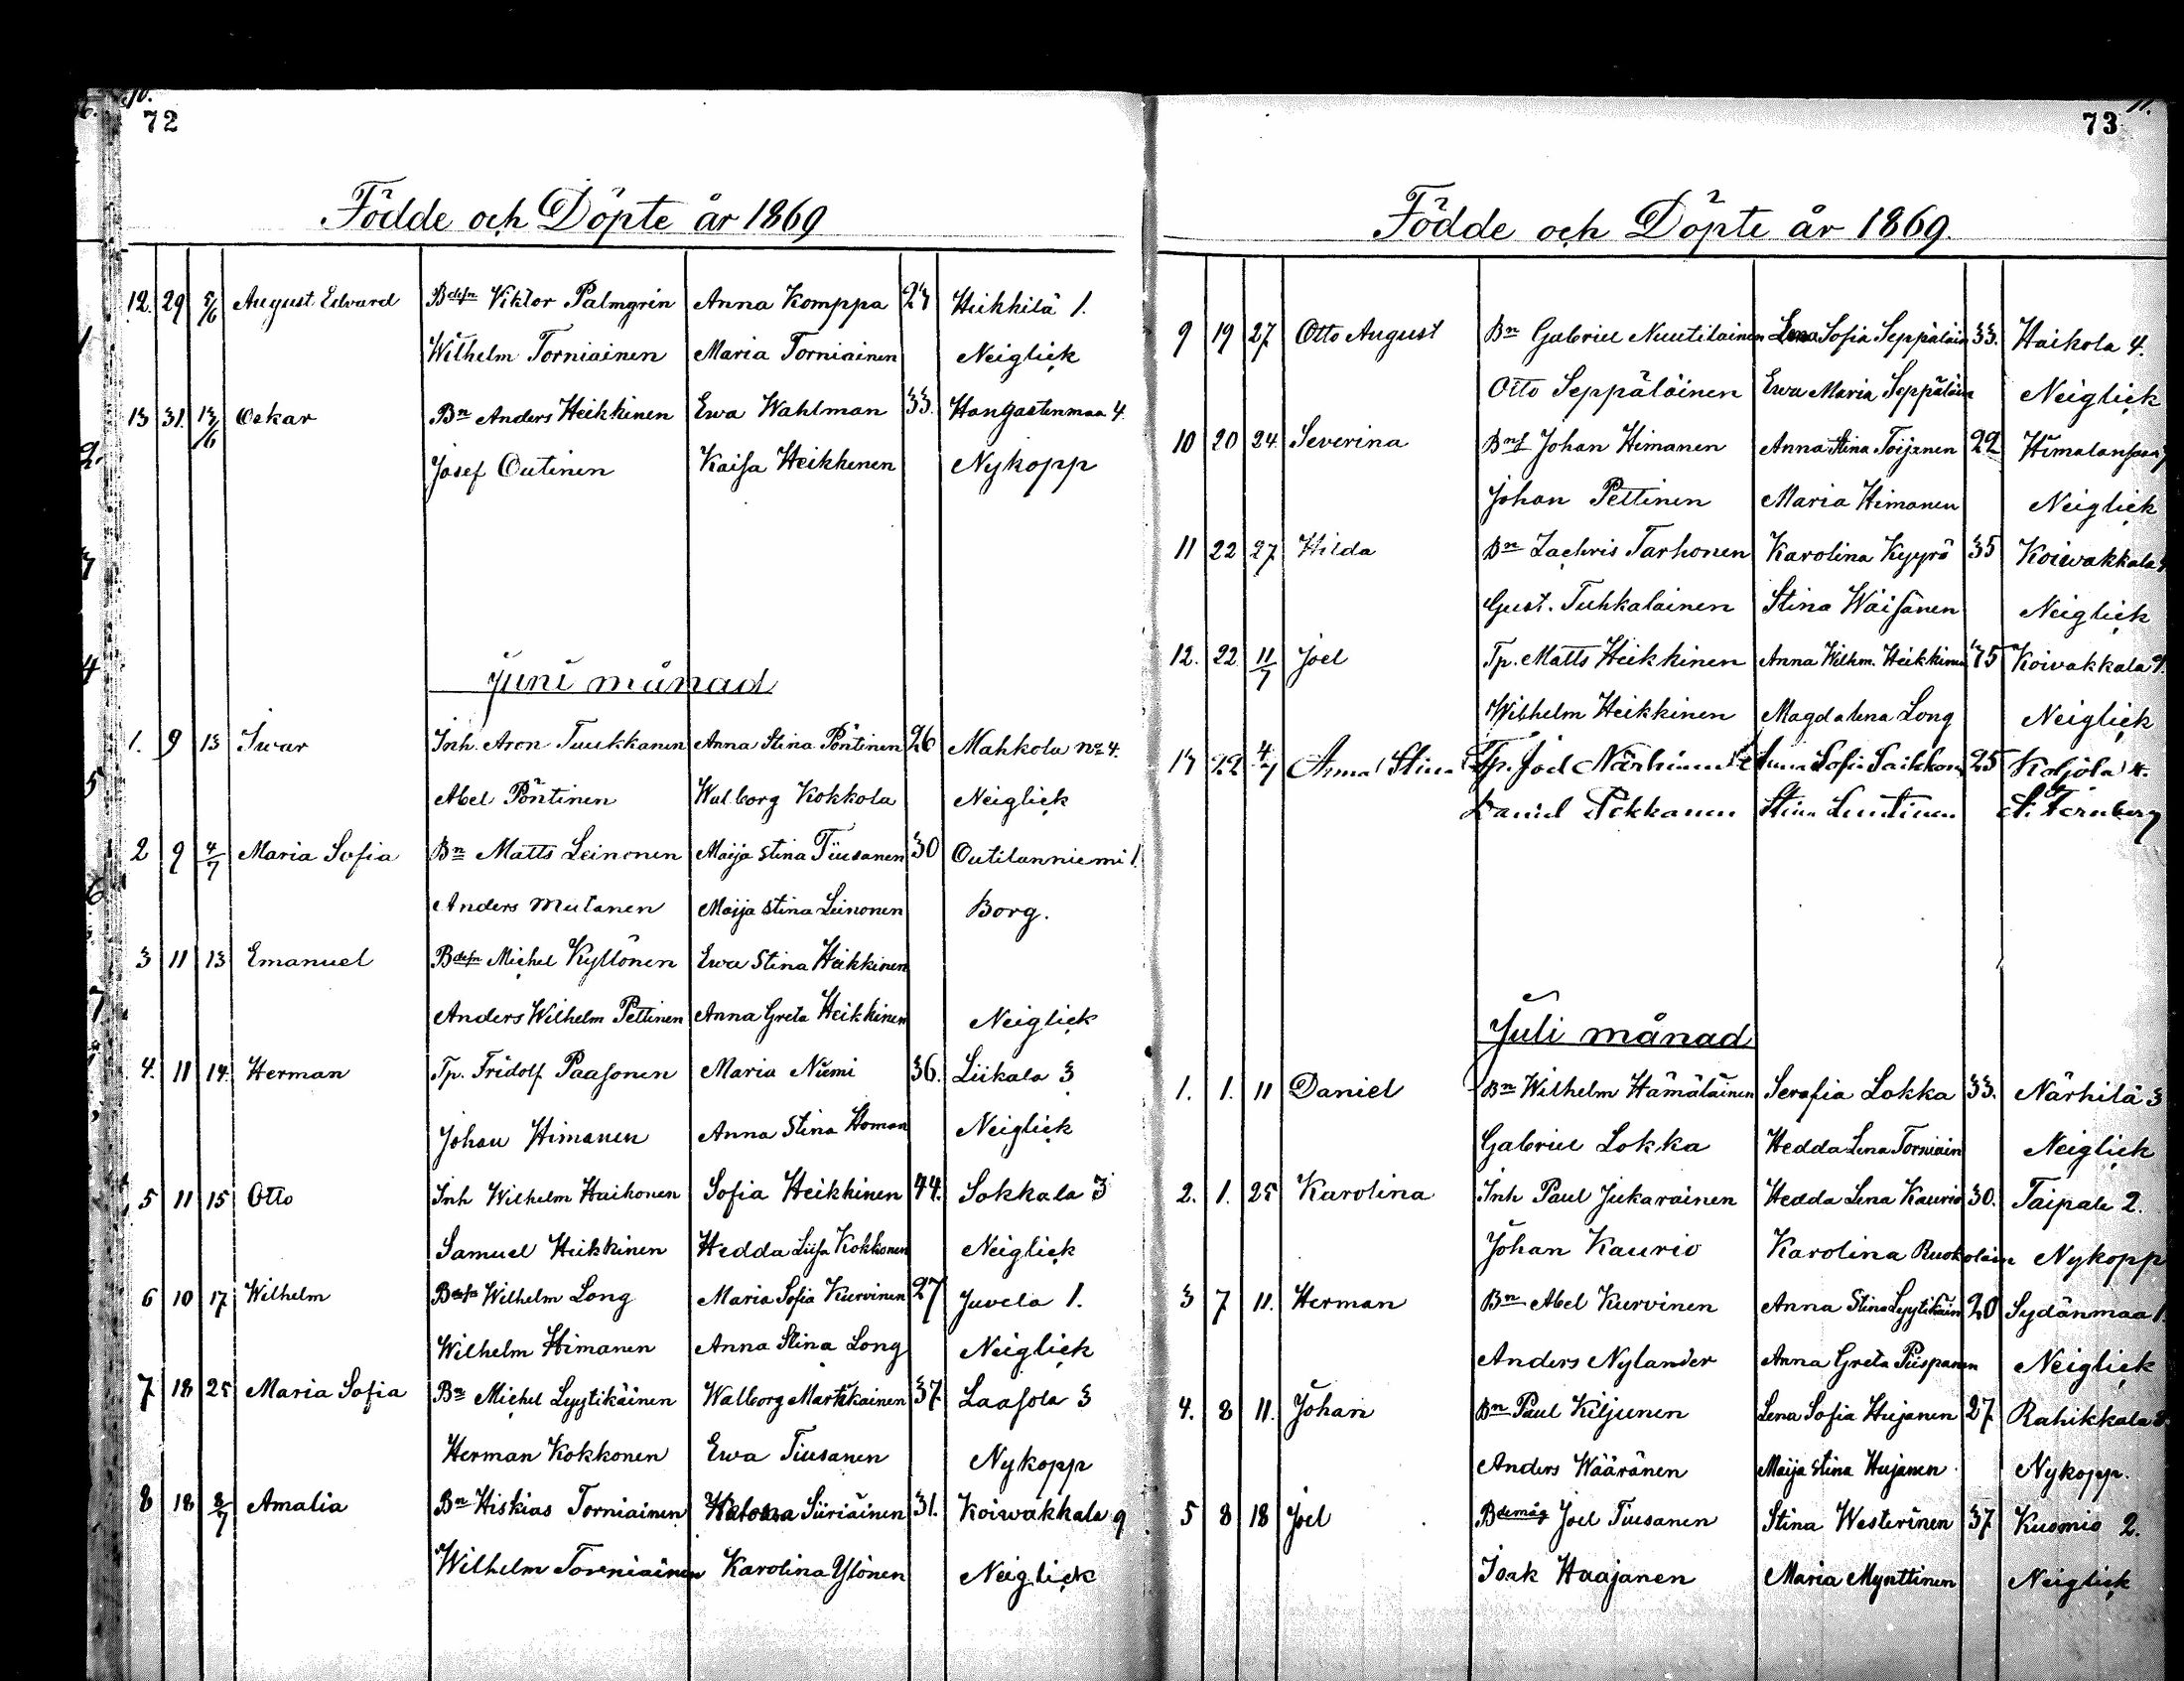 72
Födde och Döpte år 1869
12. 29 5/6 August Edvard Bdesn Viktor Palmgrin Anna Komppa 27 Heikkilä 1.
Wilhelm Torniainen Maria Torniainen Neiglick
13 31. 13/6 Oskar Bn Anders Heikkinen Ewa Wahlman 33. Hangastenmaa 4.
Josef Outinen Kaisa Heikkinen Nykopp
Juni månad
1. 9 13 Iwar Inh. Aron Tuukkanen Anna Stina Pöntinen 26 Mahkola No 4.
Abel Pöntinen Walborg Kokkola Neiglick
2 9 4/7 Maria Sofia Bn Matts Leinonen Maija Stina Tiusanen 30 Outilanniemi 1.
Anders Mutanen Maija Stina Leinonen Borg.
3 11 13 Emanuel Bdesn Michel Kyllönen Ewa Stina Heikkinen
Anders Wilhelm Pettinen Anna Greta Heikkinen Neiglick
4. 11 14. Herman Tp. Fridolf Paasonen Maria Niemi 36. Liikala 3
Johan Himanen Anna Stina Homan Neiglick
5 11 15 Otto Inh Wilhelm Haikonen Sofia Heikkinen 44. Sokkala 3
Samuel Heikkinen Hedda Liisa Kokkonen Neiglick
6 10 17 Wilhelm Wilhelm Long Maria Sofia Kurvinen 27 Juvela 1.
Wilhelm Himanen Anna Stina Long Neiglick
7 18 25 Maria Sofia Bn Michel Lyytikäinen Walborg Martikainen 37. Laasola 3
Herman Kokkonen Ewa Tiusanen Nykopp
8 18 Amalia Bn Hiskias Torniainen Siiriäinen 31. Koiwakkala 9
Wilhelm Torniainen Karolina Ylönen Neiglick
73
Födde och Döpte år 1869.
9 19 27 Otto August Bn Gabriel Nuutilainen Lena Sofia Seppäläin 33. Haikola 4.
Otto Seppäläinen Ewa Maria Seppäläin Neiglick
10 20 24. Severina Johan Himanen Anna Stina Toijanen 22
Johan Pettinen Maria Himanen Neiglick
11 22 27 Hilda Bn Zachris Tarhonen Karolina Kyyrö 35 Koiwakkala
Gust. Tuhkalainen Stina Wäisänen Neiglick
12. 22 11/7 Joel Tp. Matts Heikkinen Anna Wilhm. Heikkinen Koivakkala 9.
Wilhelm Heikkinen Magdalena Long Neiglick
13 22 4/7 Anna Stina Tp. Joel Närhinen Anna Sofia Saikkon 25 Koljola 4.
Daniel Pekkanen Stina Lintinen
Juli månad
1. 1. 11 Daniel Bn Wilhelm Hämäläinen Serafia Lokka 33. Närhilä 3
Gabriel Lokka Hedda Lena Torniain Neiglick
2. 1. 25 Karolina Inh Paul Jukarainen Hedda Lena Kaurio 30. Taipale 2.
Johan Kaurio Karolina Ruokolain Nykopp
3 7 11. Herman Bn Abel Kurvinen Anna Stina Lyytikäin 20 Sydänmaa 1.
Anders Nylander Anna Greta Piispanen Neiglick
4. 8 11. Johan Bn Paul Kiljunen Lena Sofia Hujanen 27. Rahikkala
Anders Wääränen Maija Stina Hujanen Nykopp.
5 8 18 Joel Bdemåg Joel Tiusanen Stina Westerinen 37 Kuomio 2.
Isak Haajanen Maria Mynttinen Neiglick